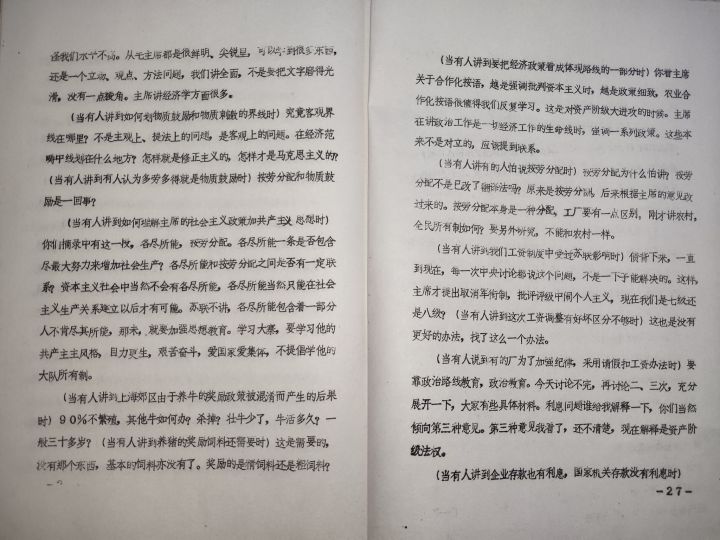 强我们水平不高。从毛主席都是很鲜明、尖锐里，可以学到很多东西，
还是一个立场、观点、方法问题，我们讲全面，不是要把文字磨得光
滑，没有一点棱角。主席讲经济学方面很多。
(当有人讲到如何划物质鼓励和物质刺激的界线时)究竟客观界
线在哪里？不是主观上、提法上的问题，是客观上的问题。在经济范
畴中线划在什么地方？怎样就是修正主义的，怎样才是马克思主义的？
(当有人讲到有人认为多劳多得就是物质鼓励时)按劳分配和物质鼓
励是一回事？
(当有人讲到如何理解主席的社会主义政策加共产主义思想时)
你们摘录中有这一段，各尽所能，按劳分配。各尽所能一条是否包含
尽最大努力来增加社会生产？各尽所能和按劳分配之间是否有一定联
系？资本主义社会中当然不会有各尽所能，各尽所能当然只能在社会
主义生产关系建立以后才有可能。苏联不讲，各尽所能包含着一部分
人不肯尽其所能，那末，就要加强思想教育。学习大寨，要学习他的
共产主主风格，自力更生，艰苦奋斗，爱国家爱集体，不提倡学他的
大队所有制。
(当有人讲到上海郊区由于养牛的奖励政策被混淆而产生的后果
时)90%不繁殖，其他牛如何办？杀掉？壮牛少了，牛活多久？一
般三十多岁？(当有人讲到养猪的奖励饲料还需要时)这是需要的，
没有那个东西，基本的饲料亦没有了。奖励的是精饲料还是粗饲料？
(当有人讲到要把经济政策看成体现路线的一部分时)你看主席
关于合作化按语，越是强调批判资本主义时，越是政策细致，农业合
作化按语很值得我们反复学习。这是对资产阶级大进攻的时候。主席
在讲政治工作是一切经济工作的生命线时，强调一系列政策。这些本
来不是对立的，应该提到联系。
(当有人讲有的人怕说按劳分配时)按劳分配为什么怕讲？按劳
分配不是已改了翻译法吗？原来是按劳分制，后来根据主席的意见改
过来的。按劳分配本身是一种分配，工厂要有一点区别，刚才讲农村，
全民所有制如何？要另外研究，不能和农村一样。
(当有人讲到我们工资制度中受过苏联影响时)债背下来，一直
到现在，每一次中央讨论都说这个问题，不是一下子能解决的。这样，
主席才提出取消军衔制，批评评级中闹个人主义，现在我们是七级还
是八级？(当有人讲到这次工资调整有好坏区分不够时)这也是没有
更好的办法，找了这么一个办法。
(当有人说到有的厂为了加强纪律，采用请假扣工资办法时)要
靠政治路线教育，政治教育。今天讨论不完，再讨论二、三次，充分
展开一下，大家有些具体材料。利息问题谁给我解释一下，你们当然
倾向第三种意见。第三种意见我看了，还不清楚，现在解释是资产阶
级法权。
(当有人讲到企业存款也有利息，国家机关存款没有利息时)
-27-